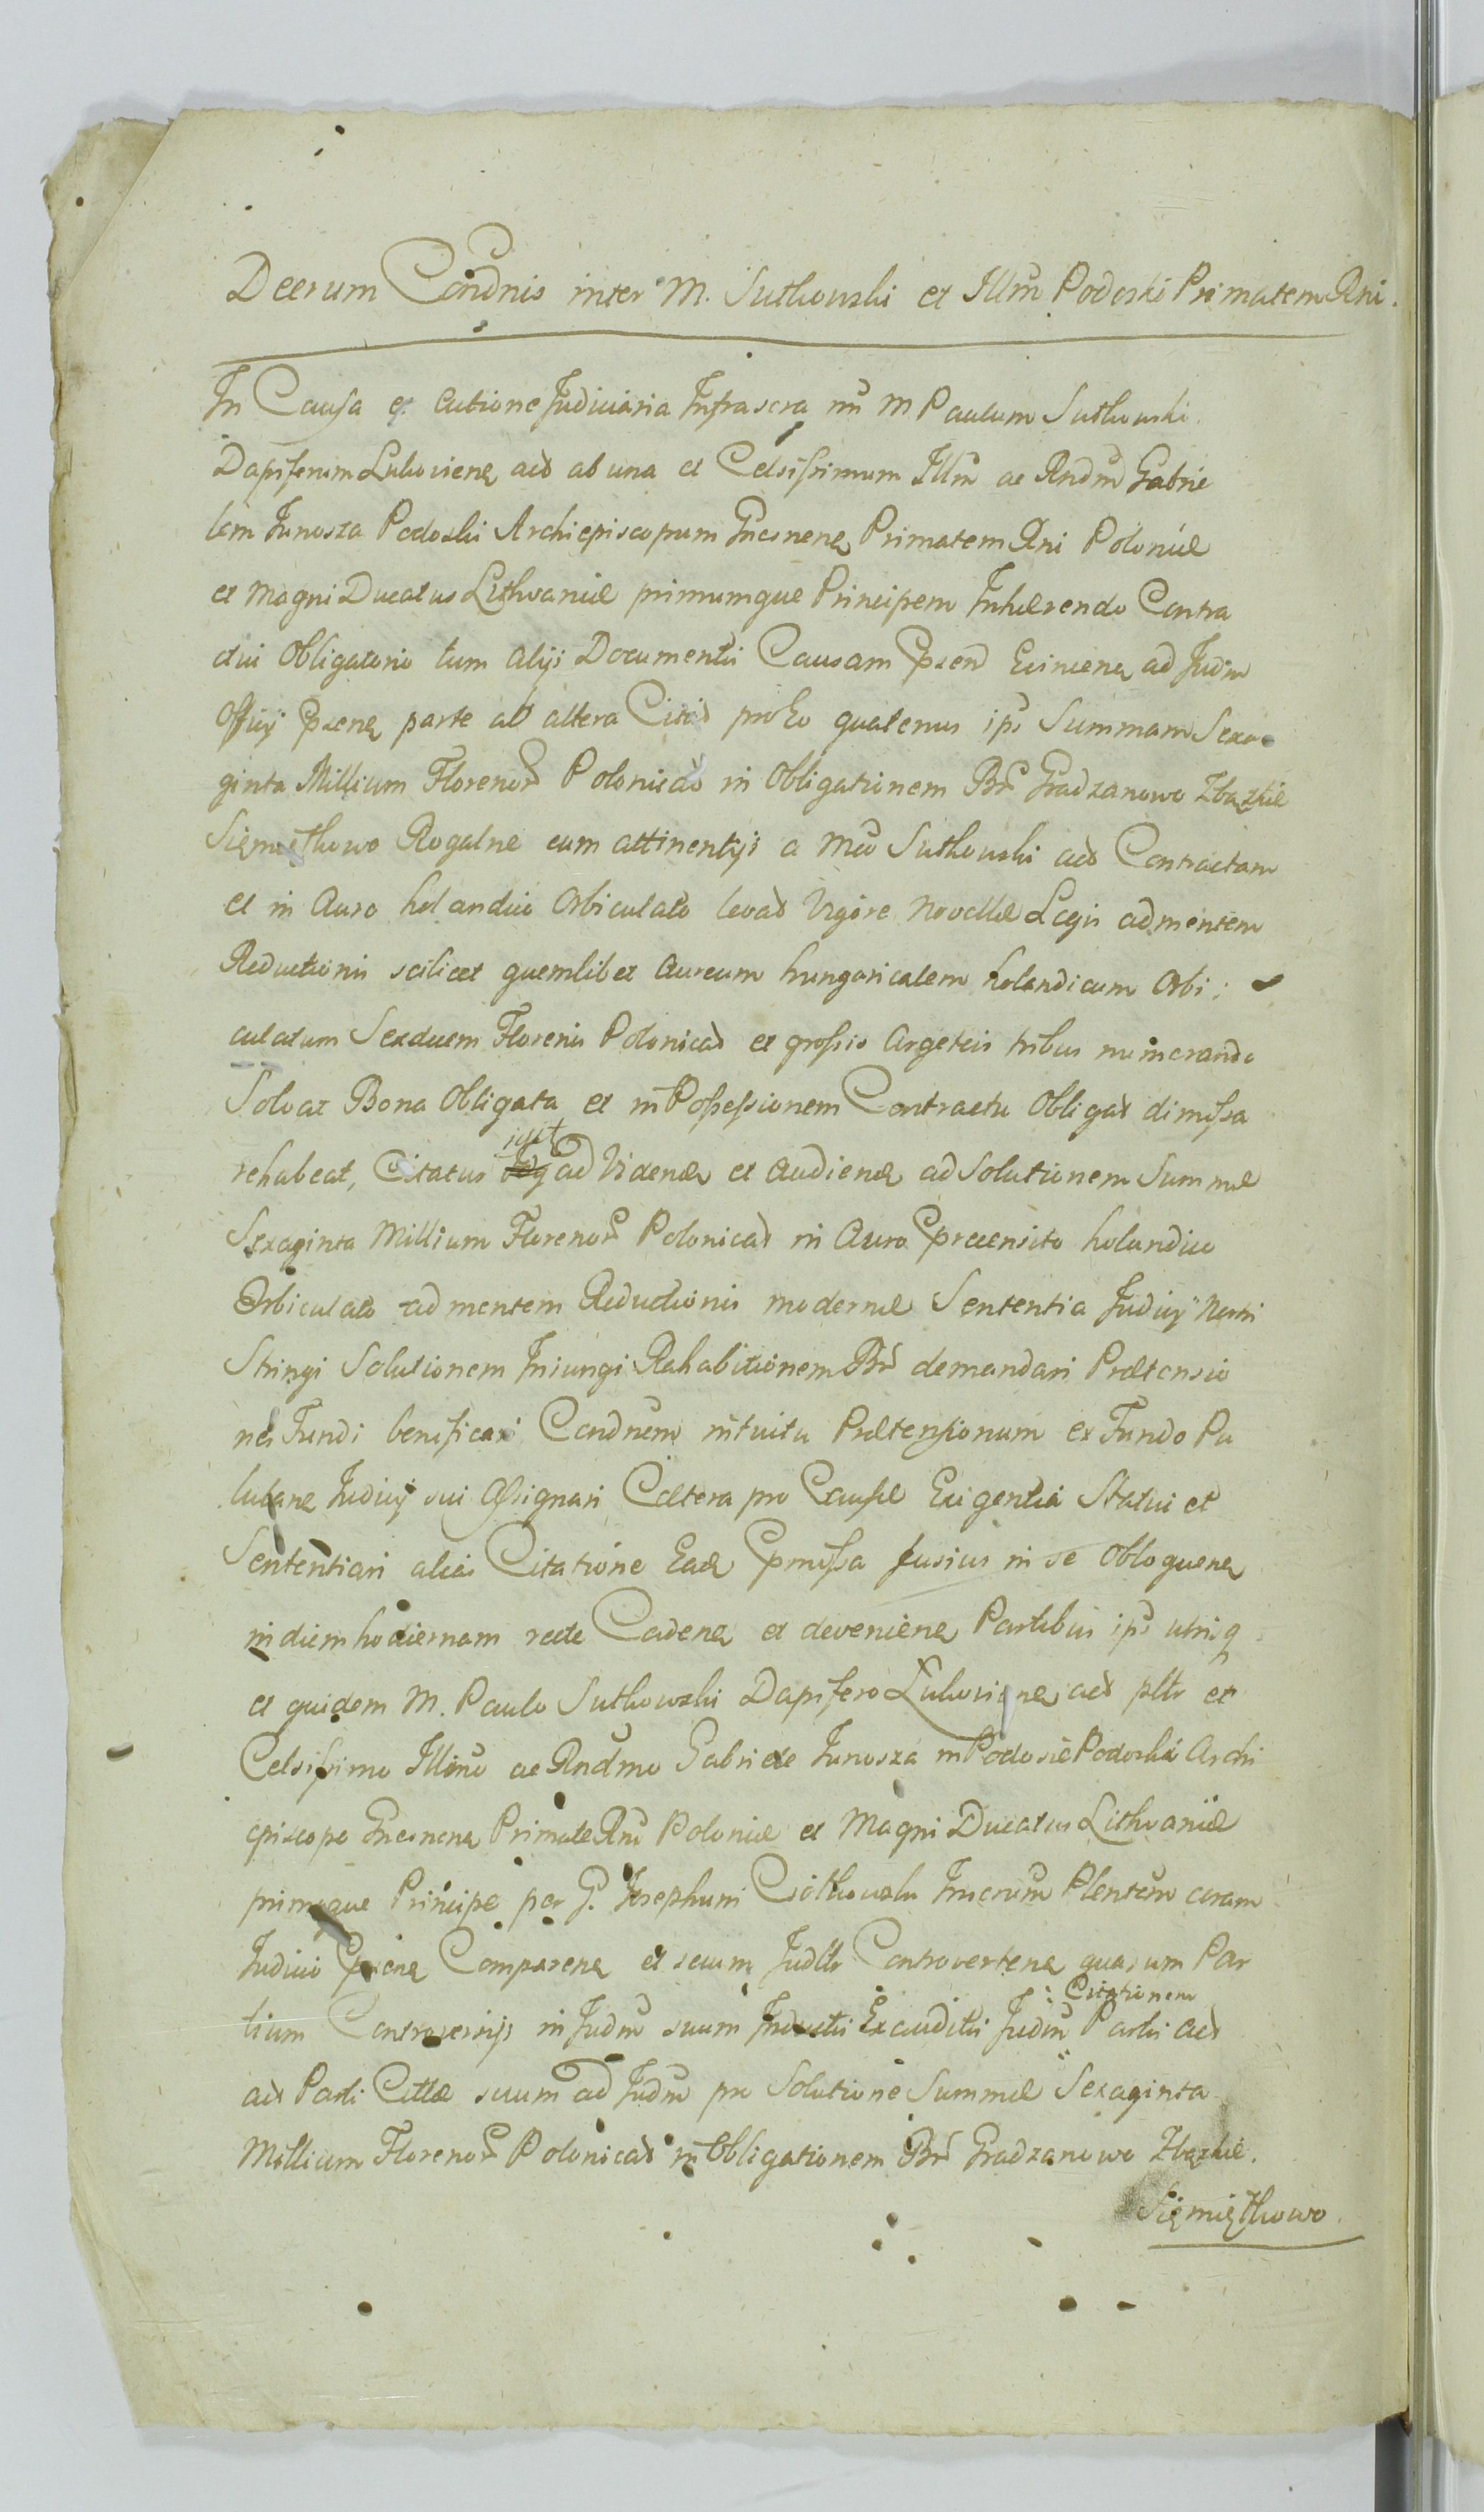 Decrum Condnis inter M. Sutkowski et Illm Podoski Primatem Rni.
In Causa et Actione Judiciaria Infrascra m̄ M Paulum Sutkowski
Dapiferum Lukoviens act ab una et Celsissimum Illm ac Rndm Gabrie
lem Junosza Podoski Archiepiscopum Gnesnens Primatem Rni Poloniæ
et Magni Ducatus Lithvaniæ primumque Principem Inhærendo Contra
ctui Obligatorio tum alijs Documentis Causam Evincens ad Judm
Officij parte ab altera Citat pro Eo quatenus ips Summam Sexa
ginta Millium Florenor Polonical in Obligationem Br Gradzanowo Zbązkie
Sięmiętkowo Rogalne cum attinentijs a Mco Sutkowski act Contractam
et in Auro holandico Orbiculato levat Vigore Novellæ Legis ad mentem
Reductionis scilicet quemlibet Aureum hungaricalem holandicum Orbi:
culatum Sexdecem Florenis Polonical et grossis Argeteis tribus numerando
Solvat Bona Obligata et in Possessionem Contractu Obligat dimissa
rehabeat, Citatus ad Vidend et Audiend ad Solutionem Summæ
Sexaginta Millium Florenor Polonical in Auro Præcensito holandico
Orbiculato ad mentem Reductionis modernæ Sententia Judicij Nostri
Stringi Solutionem Iniungi Rehabitionem Br demandari Prætensio
nes Fundi Condnem intuitu Prætensionum ex Fundo Pa
lutane Judicij sui Assignari Cætera pro Causæ Exigentia Statui et
Sententiari alias Citatione Ead Præmissa fusius in se Obloquens
in diem hodiernam recte Cadens et deveniens Partibus ips utrisq
et quidem M. Paulo Sutkowski Dapifero Lukoviens act pltr et
Celsissimo Illmo ac Rndmo Gabriele Junosza in Podosie Podoski Archi
episcopo Gnesnens Primate Rni Poloniæ et Magni Ducatus Lithvaniæ
primoque Principe per G. Josephum Plentem coram
Judicio Comparens et secum Judltr Controvertens quarum Par
tium Controversijs in Judm suum Inductis Exauditis Judm : Citationem Partis Act
act Parti Cittæ suum ad Judm pro Solutione Summæ Sexaginta
Millium Florenor Polonical in Obligationem Br Gradzanowo Zbązkie.
Sięmiętkowo.